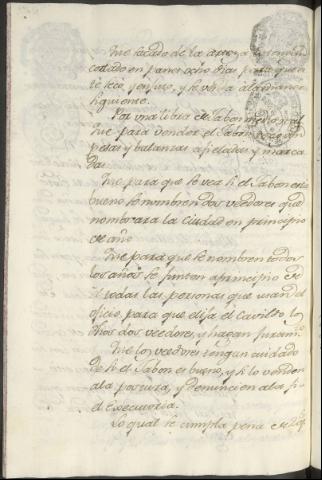 Que sacado de la
cortado en panes ocho dias para que
se seq, y enjuge, y se venda
siguiente.
Por una libra de Jabon
Que para vender el Jabon
pesas y balanzas afieladas, y marca
das.
Que para que se vea si el Jabon esta
bueno se nombren dos veedores que
nombrara la Ciudad en principio
de año
Que para que se nombren todos
los años se juntan a principio de
el todas las personas que usan el
oficio, para que elija el Cavildo los
dhos dos veedores, y hagan juram.to
Que los veedores tengan cuidado
de si el Jabon es bueno, y si lo venden
ala postura, y denuncien ala fi
el executoria.
Lo qual se cumpla pena de